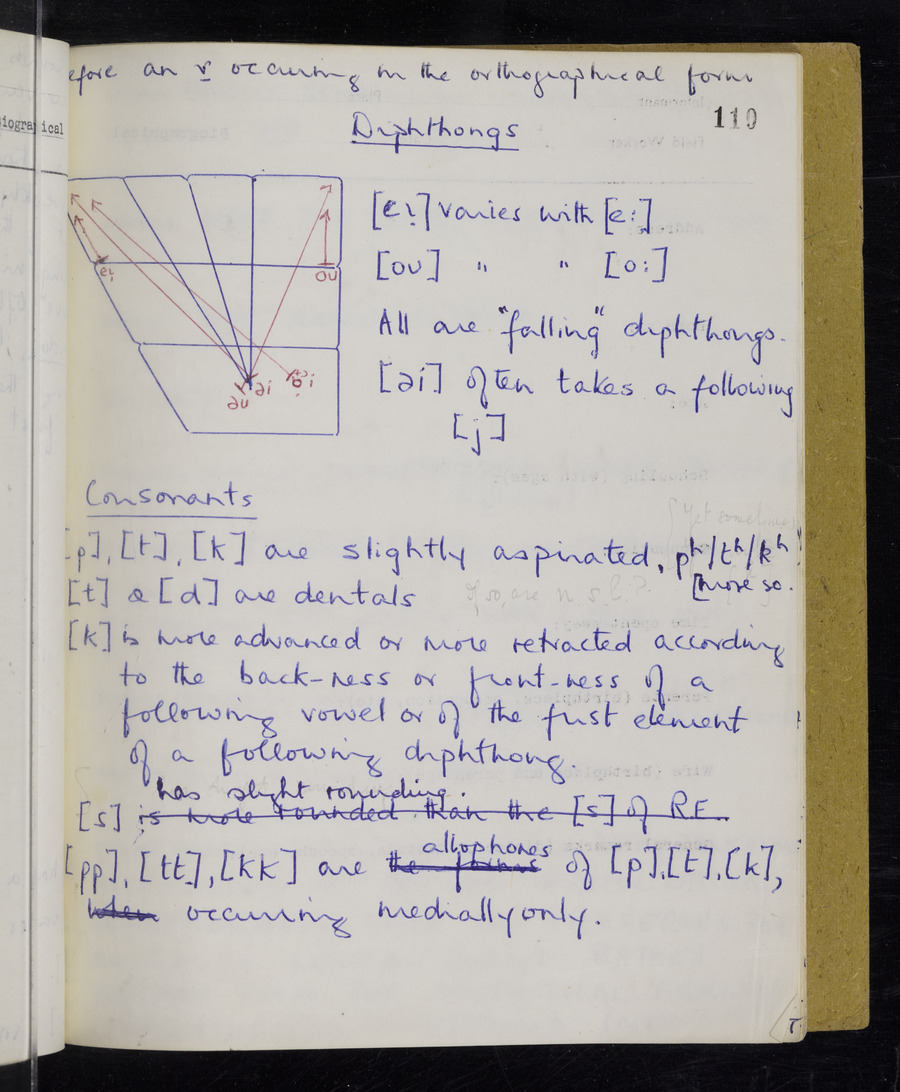 efore an r occuring in the orthographical form
iograp ical
110
Diphthongs
[ei] varies with [e:]
[oʊ] " " [o:]
All are "falling" diphthongs.
[əi] often takes a following
[j]
ei
oʊ
əʊ
əi
Consonants
[p], [t], [k] are slightly aspirated, pʰ/tʰ/kʰ
[more so.
[t] & [d] are dentals
Yet sometimes
If so, are
[k] is more advanced or more retracted according
to the back-ness or front-ness of a
following vowel or of the first element
of a following diphthong.
has slight rounding.
[s] is more rounded than the [s] of R.E.
allophones
[pp], [tt], [kk] are the forms of [p], [t], [k],
when occurring medially only.